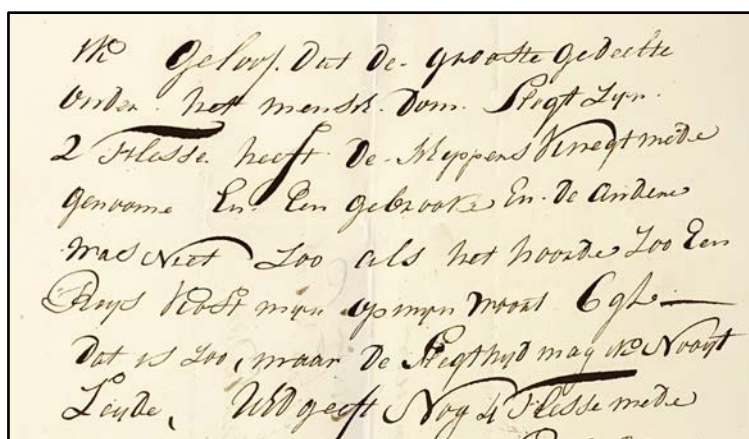 ik geloof. Dat de grooste gedeelte
onder het mensk. Dom. slegt zijn.
2 Flesse heeft de Schippers knegt mede
genoome En Een gebrooke En de andere
was Niet Zoo als het hoorde Zoo Een
Reys kost mijn op mijn woord 6 gl
Dat is zoo, maar de slegthyd mag ik Nooyt
Leyde, UEd geeft Nog 4 Flesse mede